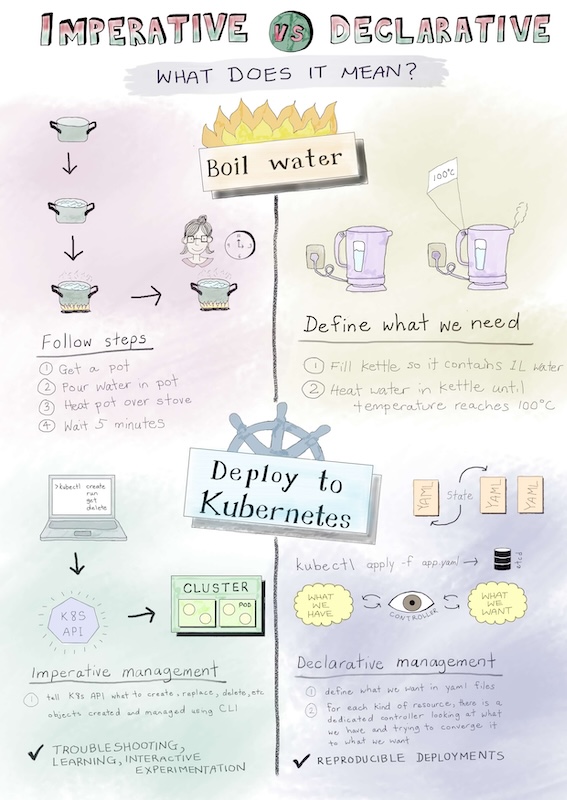 IMPERATIVE VS DECLARATIVE
WHAT DOES IT MEAN?
Boil water
100°C
Follow steps
1 Get a pot
2 Pour water in pot
3 Heat pot over stove
4 Wait 5 minutes
Define what we need
1 Fill kettle so it contains 1L water
2 Heat water in kettle until
temperature reaches 100°C
Deploy to
Kubernetes
>kubectl create
run
get
delete
K8S
API
CLUSTER
POD
Imperative management
1 tell K8s API what to create, replace, delete, etc
objects created and managed using CLI
✓ TROUBLESHOOTING,
LEARNING, INTERACTIVE
EXPERIMENTATION
YAML
State
YAML
YAML
kubectl apply -f app.yaml →
etcd
WHAT
WE
HAVE
CONTROLLER
WHAT
WE
WANT
Declarative management
1 define what we want in yaml files
2 for each kind of resource, there is a
dedicated controller looking at what
we have and trying to converge it
to what we want
✓ REPRODUCIBLE DEPLOYMENTS